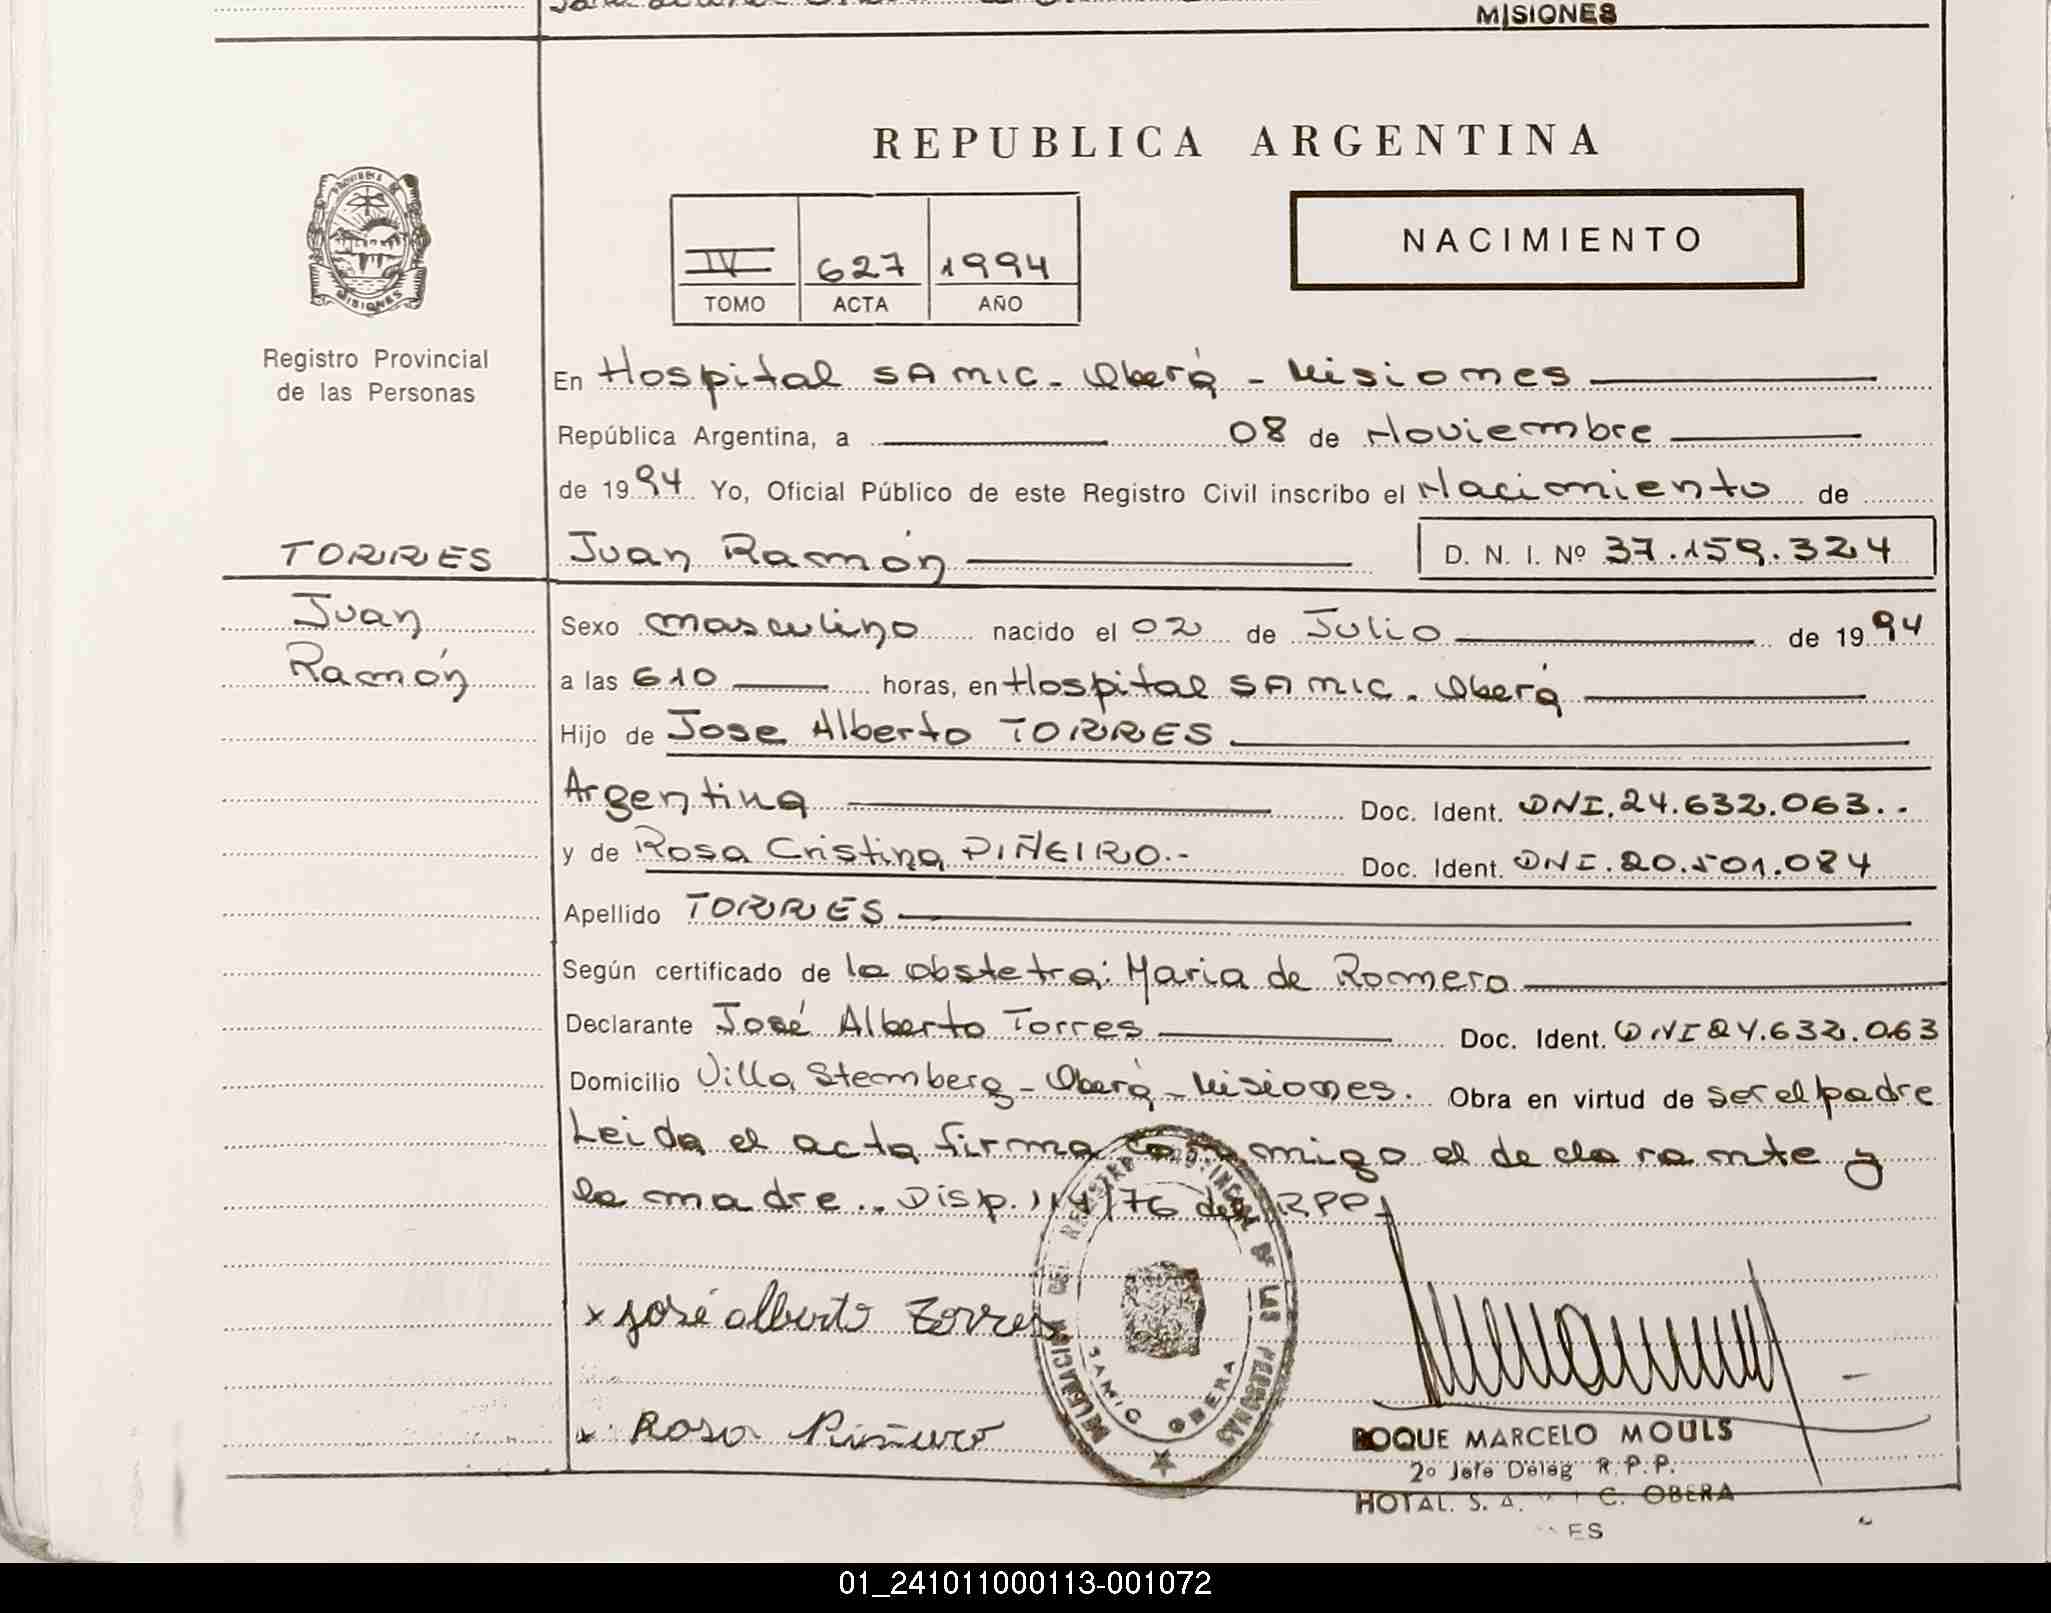 MISIONES
REPUBLICA ARGENTINA
PROVINCIA DE MISIONES
IV 627 1994
TOMO ACTA AÑO
NACIMIENTO
Registro Provincial
de las Personas
En Hospital SAMIC - Oberá - Misiones
República Argentina, a 08 de Noviembre
de 1994 Yo, Oficial Público de este Registro Civil inscribo el Nacimiento de
TORRES Juan Ramón D. N. I. Nº 37.159.324
Juan
Ramón
Sexo masculino nacido el 02 de Julio de 1994
a las 610 horas, en Hospital SAMIC. Oberá
Hijo de Jose Alberto TORRES
Argentina Doc. Ident. DNI. 24.632.063..
y de Rosa Cristina PIÑEIRO.- Doc. Ident. DNI. 20.501.084
Apellido TORRES
Según certificado de la obstetra: Maria de Romero
Declarante José Alberto Torres Doc. Ident. DNI 24.632.063
Domicilio Villa Stemberg - Oberá - Misiones. Obra en virtud de ser el padre
Leida el acta firma conmigo el declarante y
la madre.. Disp. 114/76 del RPP
x José Alberto Torres
x Rosa Piñeiro
DELEGACION DEL REGISTRO PROVINCIAL DE LAS PERSONAS
SAMIC OBERA
ROQUE MARCELO MOULS
2º Jefe Deleg R.P.P.
HOTAL. S. A. C. OBERA
ES
01_241011000113-001072